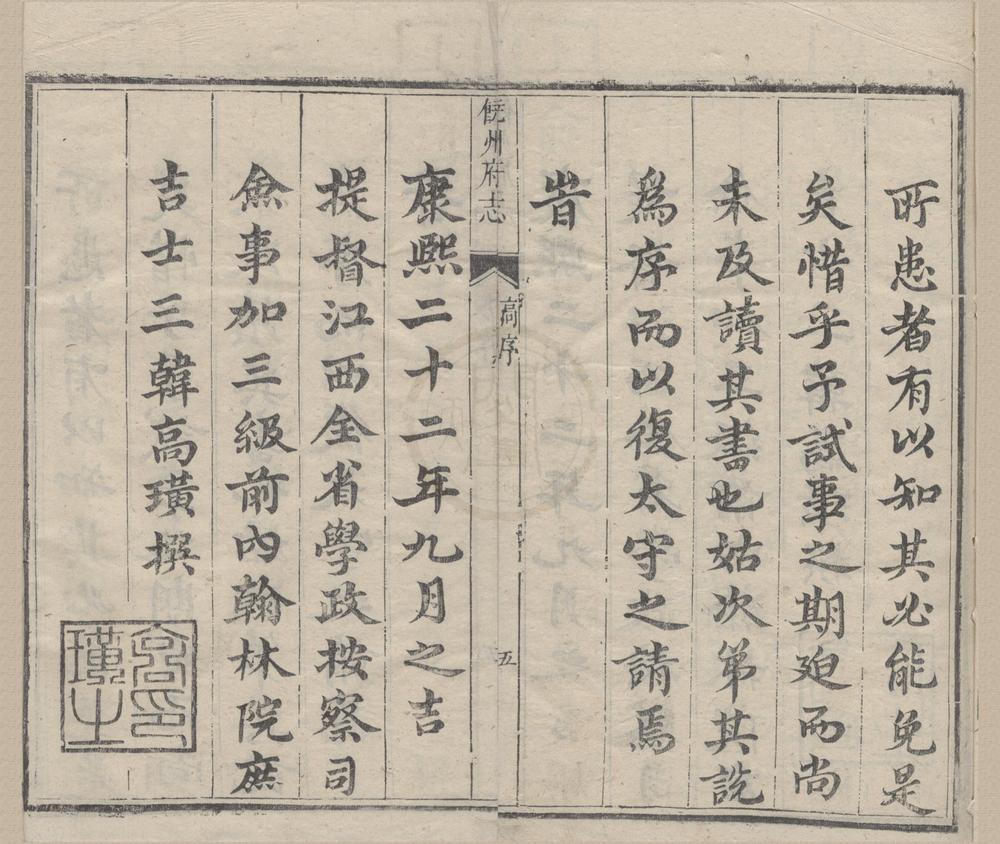 所患者有以知其必能免是
矣惜乎予試事之期廹而尚
未及讀其書也姑次第其說
爲序而以復太守之請焉
旹
饒州府志
高序
五
康熙二十二年九月之吉
提督江西全省學政按察司
僉事加三級前內翰林院庶
吉士三韓高璜撰
高璜之印